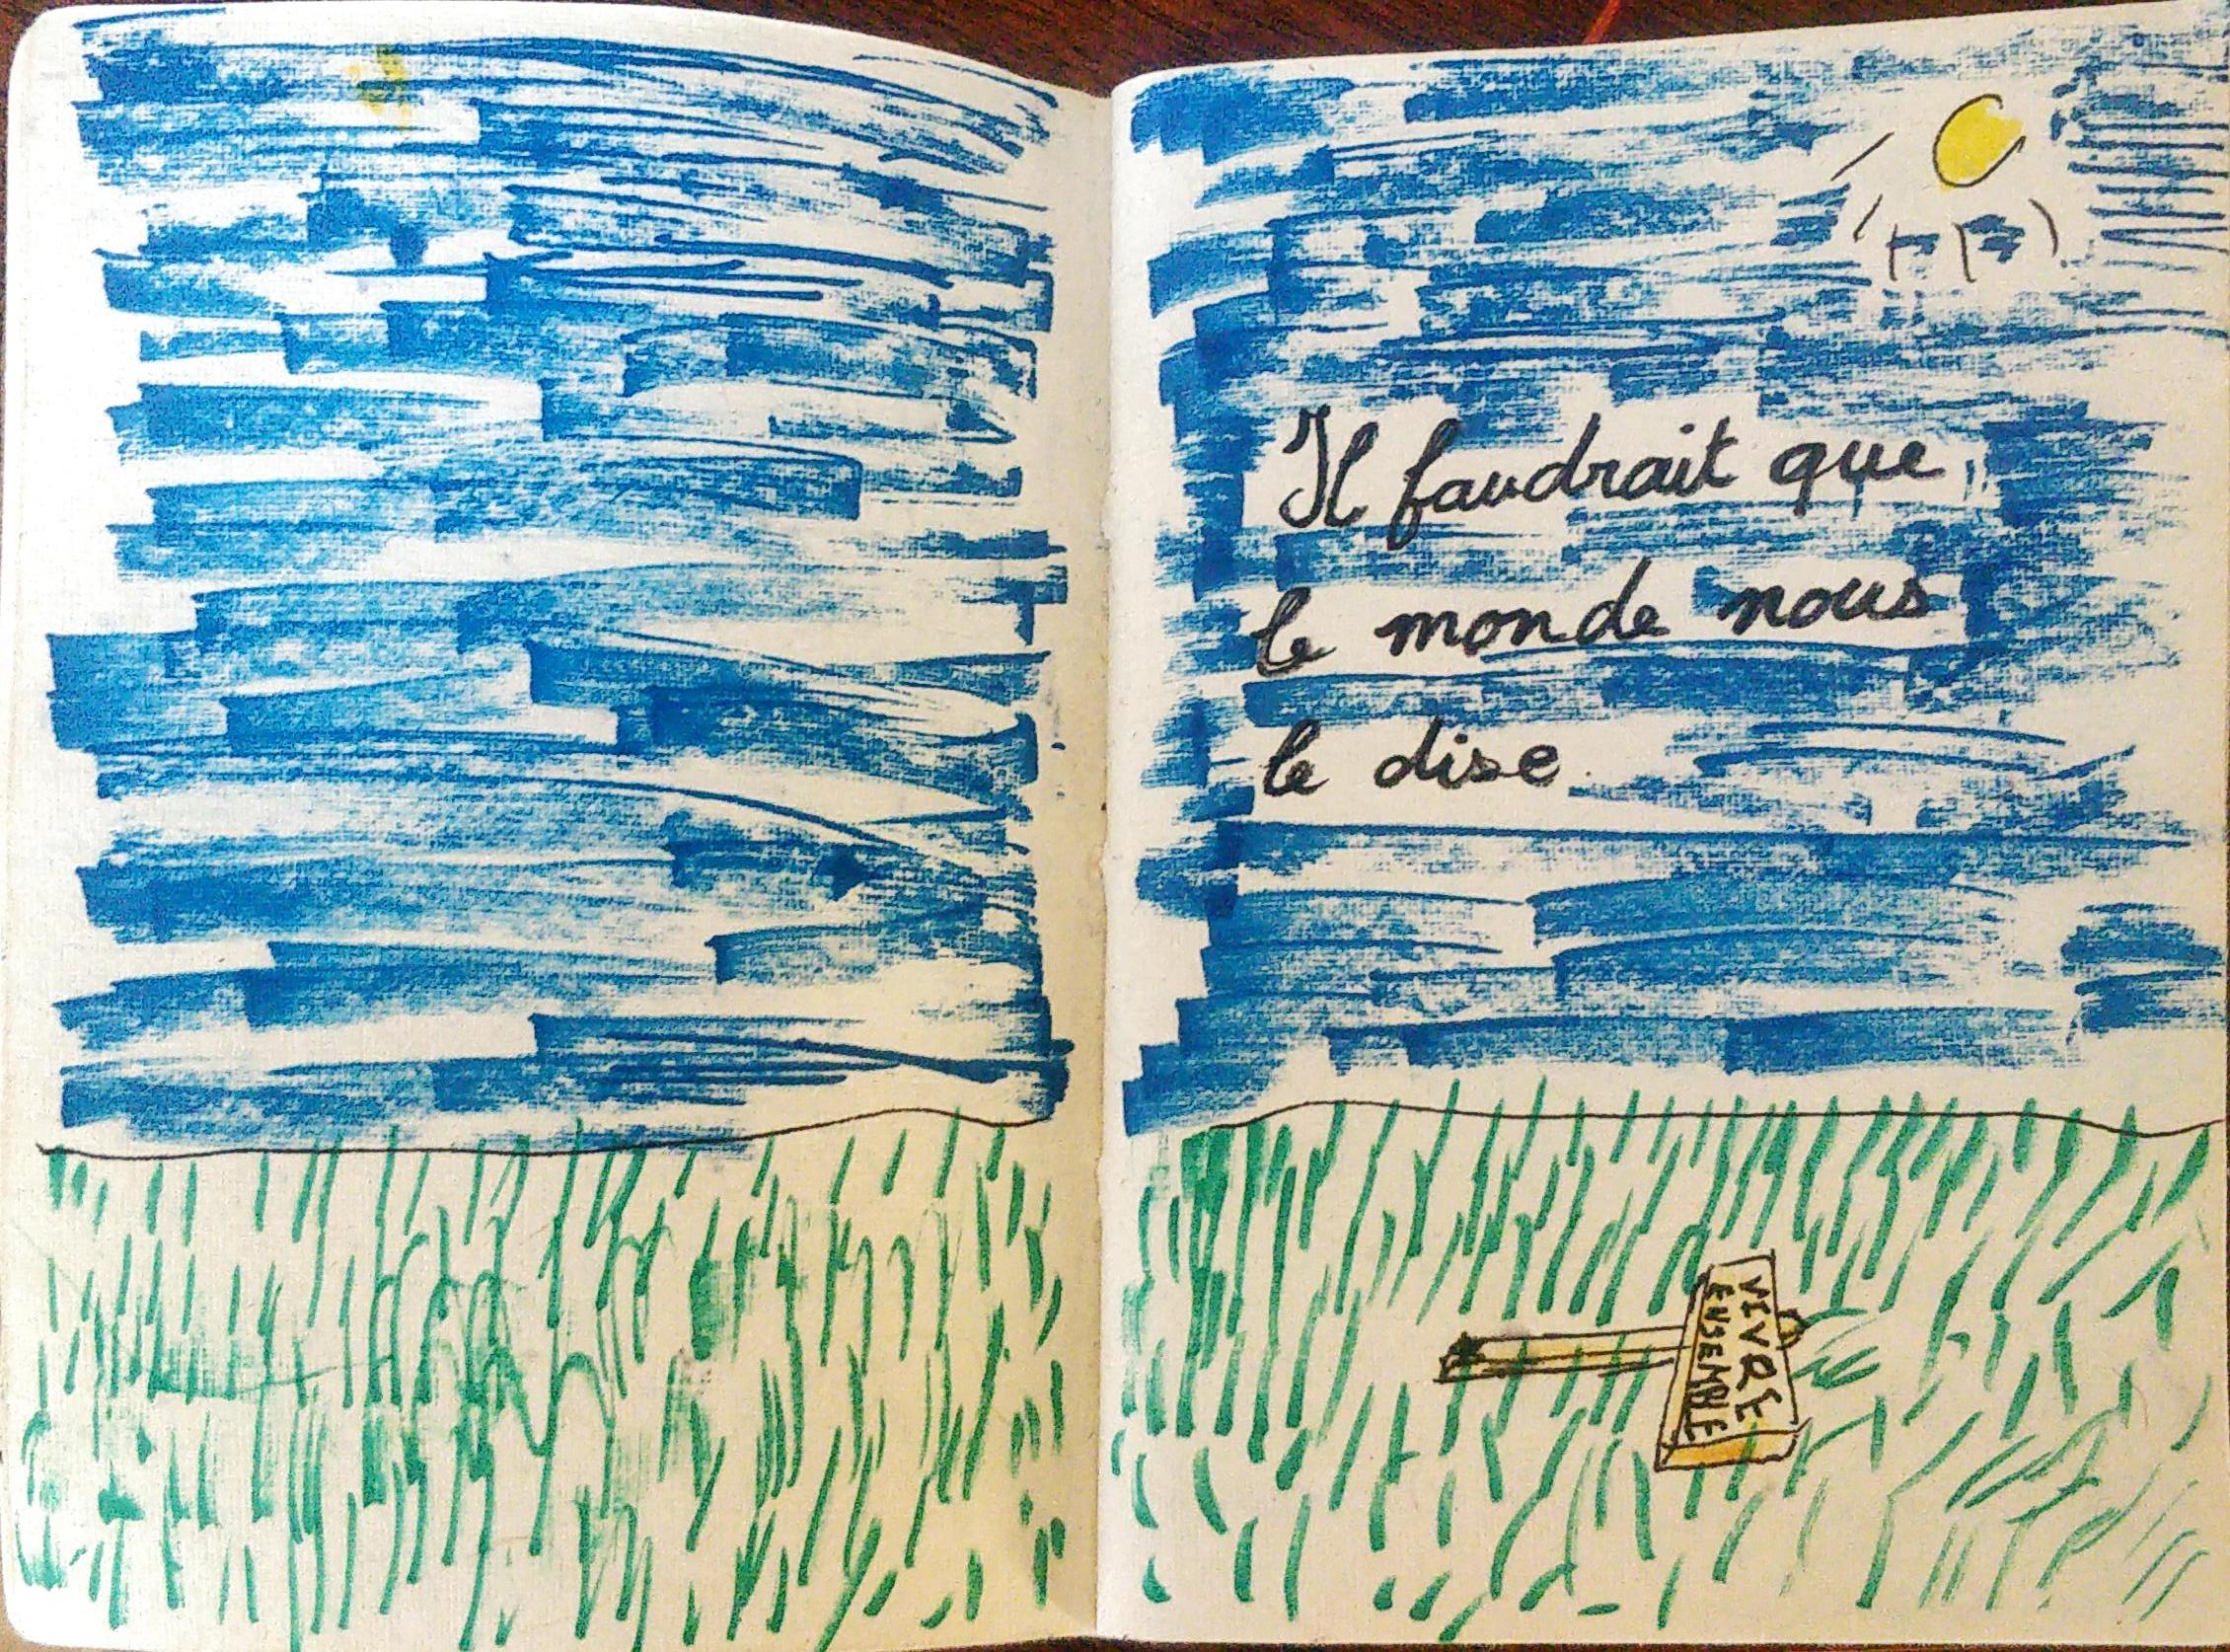 Il faudrait que
le monde nous
le dise
VIVRE
ENSEMBLE